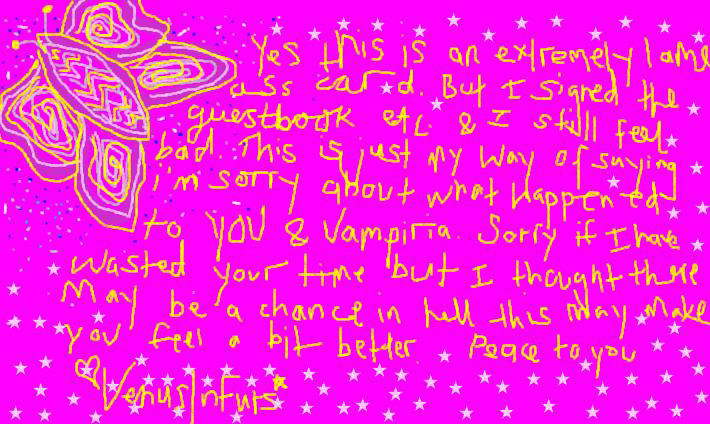 Yes this is an extremely lame
ass card. But I signed the
guestbook etc. & I still feel
bad This is just my way of saying
i'm sorry about what happened
to YOU & Vampiria. Sorry if I have
wasted your time but I thought there
May be a chance in hell this may make
you feel a bit better. Peace to you
♡ VenusInfurs*